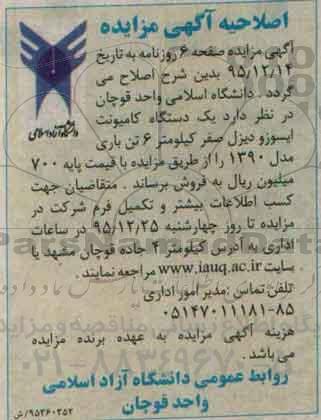 اصلاحیه آگهی مزایده
آگهی مزایده صفحه ۶ روزنامه به تاریخ
۹۵/۱۲/۱۴ بدین شرح اصلاح می
گردد . دانشگاه اسلامی واحد قوچان
در نظر دارد یک دستگاه کامیونت
ایسوزو دیزل صفر کیلومتر ۶ تن باری
مدل ۱۳۹۰ را از طریق مزایده با قیمت پایه ۷۰۰
میلیون ریال به فروش برساند . متقاضیان جهت
کسب اطلاعات بیشتر و تکمیل فرم شرکت در
مزایده تا روز چهارشنبه ۹۵/۱۲/۲۵ در ساعات
اداری به آدرس کیلومتر ۴ جاده قوچان مشهد یا
سایت www.iauq.ac.ir مراجعه نمایند .
تلفن تماس :مدیر امور اداری
۰۵۱۴۷۰۱۱۱۸۱-۸۵
هزینه آگهی مزایده به عهده برنده مزایده
می باشد .
روابط عمومی دانشگاه آزاد اسلامی
واحد قوچان
۹۵۳۶۰۳۵۲/ش
دانشگاه آزاد اسلامی